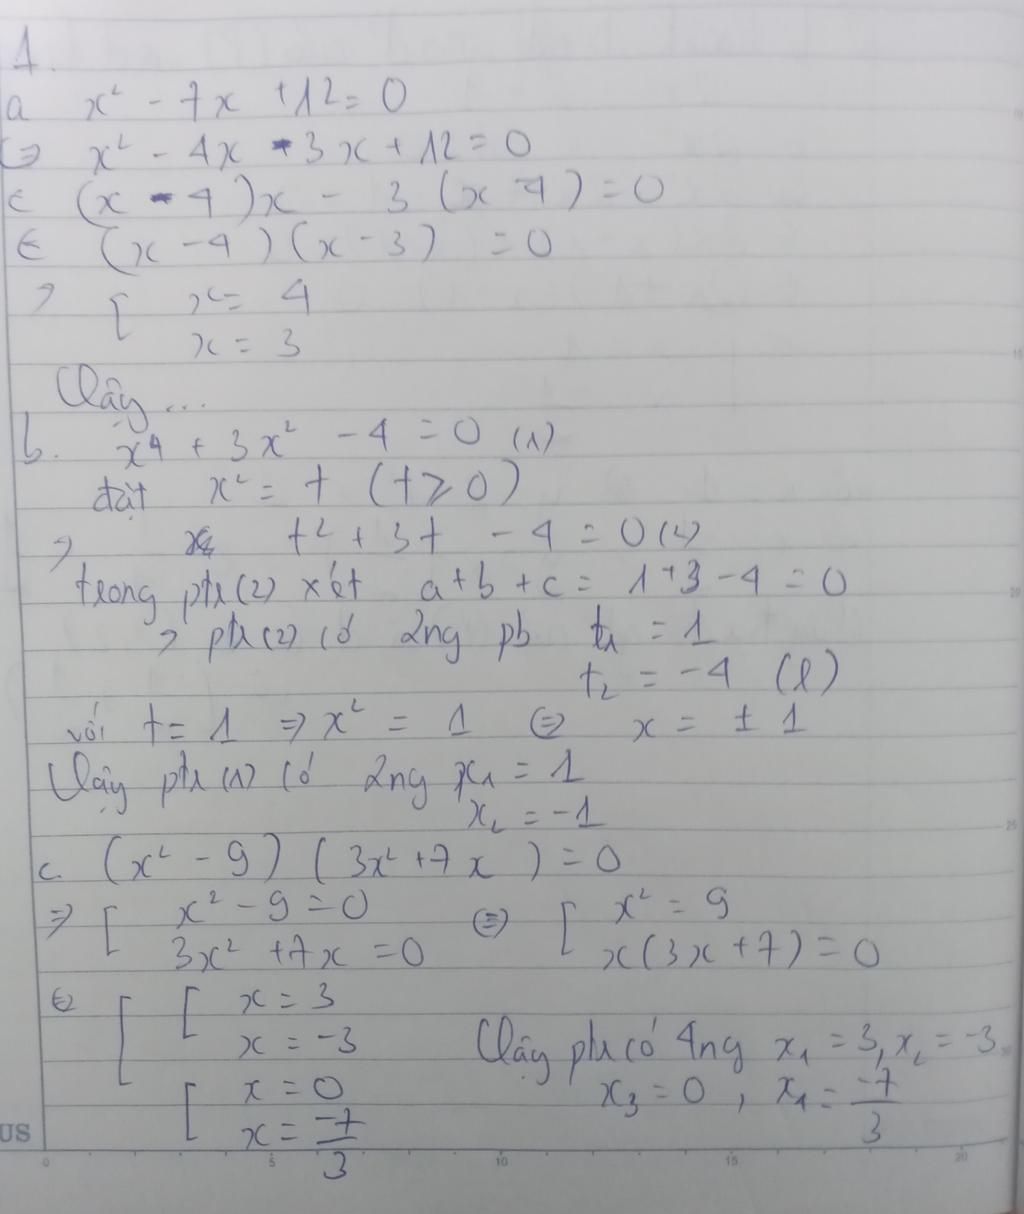 1.
a x² - 7x + 12 = 0
⇔ x² - 4x - 3x + 12 = 0
⇔ (x - 4)x - 3(x - 4) = 0
⇔ (x - 4)(x - 3) = 0
⇒ [ x = 4
x = 3
Vậy ...
b. x⁴ + 3x² - 4 = 0 (1)
đặt x² = t (t ≥ 0)
⇒ t² + 3t - 4 = 0 (2)
trong ptr (2) xét a + b + c = 1 + 3 - 4 = 0
⇒ ptr (2) có 2ng pb t₁ = 1
t₂ = -4 (l)
với t = 1 ⇒ x² = 1 ⇔ x = ± 1
Vậy ptr (1) có 2ng x₁ = 1
x₂ = -1
c. (x² - 9) (3x² + 7x) = 0
⇒ [ x² - 9 = 0 ⇔ [ x² = 9
3x² + 7x = 0 x(3x + 7) = 0
⇔ [ [ x = 3
x = -3 Vậy ptr có 4ng x₁ = 3, x₂ = -3
[ x = 0 x₃ = 0, x₄ = -7/3
x = -7/3
US
0 5 10 15 20